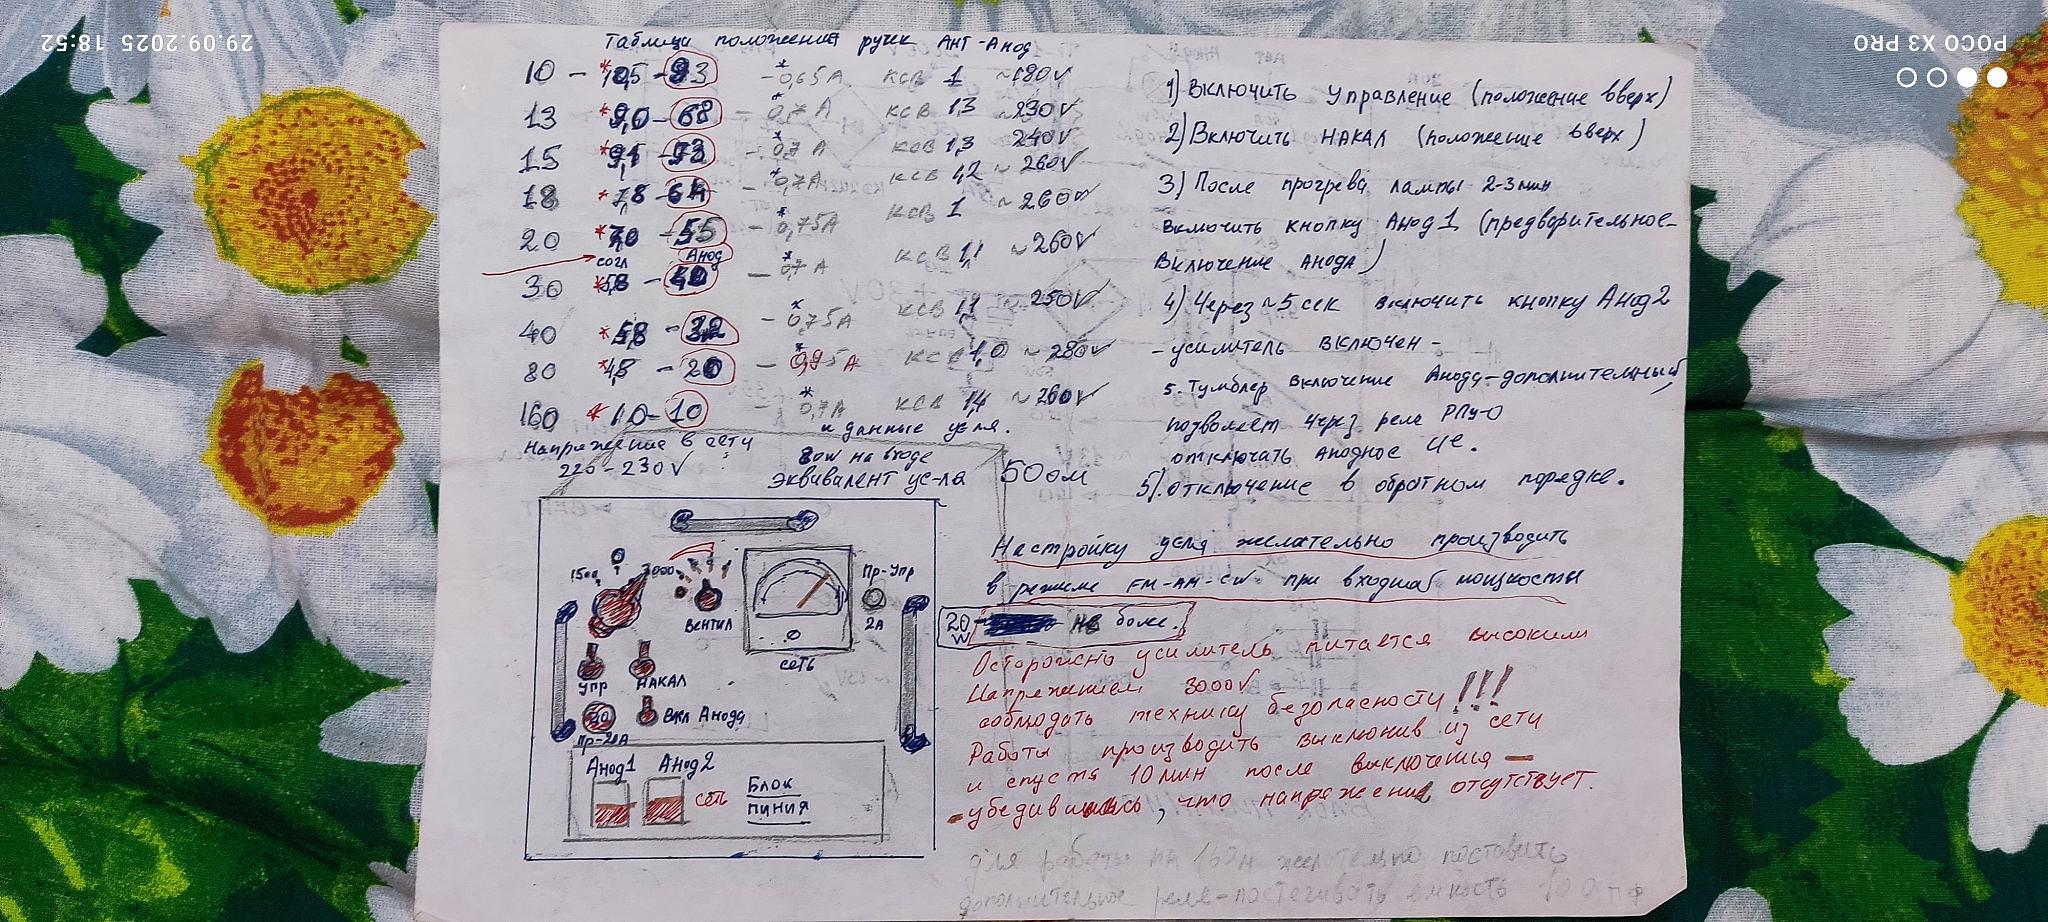 Таблица положения ручек АНТ-Анод
10 - * 10,5 - 93 - * 0,65А КСВ 1 ~180V
13 * 9,0 - 68 - * 0,7А КСВ 1,3 ~230V
15 * 9,1 - 73 - * 0,7А КСВ 1,3 240V
18 * 7,8 - 64 - * 0,7А КСВ 1,2 ~260V
20 * 7,0 - 55 - * 0,75А КСВ 1 ~260V
согл Анод
30 * 5,8 - 40 - * 0,7А КСВ 1,1 ~260V
40 * 5,8 - 32 - * 0,75А КСВ 1,1 250V
80 * 4,5 - 20 - * 0,95А КСВ 1,0 ~280V
160 * 1,0 - 10 - * 0,7А КСВ 1,4 ~260V
и данные ус-ля.
Напряжение в сети
220-230V
80W на входе
Эквивалент ус-ля 50ом
1500 0 3000
ВЕНТИЛ
сеть
Пр-Упр
2А
УПР НАКАЛ
20
Вкл Анода
Пр-20А
Анод1 Анод2
сеть
Блок
пиния
1) Включить Управление (положение вверх)
2) Включить НАКАЛ (положение вверх)
3) После прогрева лампы 2-3 мин
включить кнопку Анод1 (предварительное-
включение анода)
4) Через ~5 сек включить кнопку Анод2
- усилитель включен -
5. Тумблер включение Анода-дополнительный
позволяет через реле РПУ-0
отключать анодное
5). Отключение в обратном порядке.
Настройку ус-ля желательно производить
в режиме FM-AM-CW при входной мощности
20W не более.
Осторожнь усилитель питается высоким
Напряжением 3000V
соблюдать технику безопасности!!!
Работы производить выключив из сети
и спустя 10 мин после выключения -
- убедившись, что напряжение отсутствует.
для работы на 160м желательно поставить
дополнительное реле-постегивать емкость 100пФ